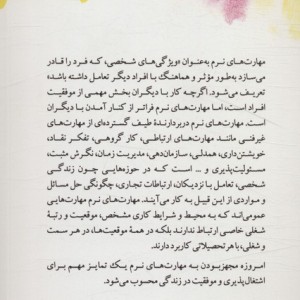 مهارت‌های نرم به‌عنوان «ویژگی‌های شخصی، که فرد را قادر
می‌سازد به‌طور مؤثر و هماهنگ با افراد دیگر تعامل داشته باشد»
تعریف می‌شود. اگرچه کار با دیگران بخش مهمی از موفقیت
افراد است، اما مهارت‌های نرم فراتر از کنار آمدن با دیگران
است. مهارت‌های نرم دربردارندهٔ طیف گسترده‌ای از مهارت‌های
غیرفنی مانند مهارت‌های ارتباطی، کار گروهی، تفکر نقاد،
خویشتن‌داری، همدلی، سازمان‌دهی، مدیریت زمان، نگرش مثبت،
مسئولیت‌پذیری و ... است که در حوزه‌هایی چون زندگی
شخصی، تعامل با نزدیکان، ارتباطات تجاری، چگونگی حل مسائل
و مواردی از این قبیل به کار می‌آیند. مهارت‌های نرم مهارت‌هایی
عمومی‌اند که به محیط و شرایط کاری مشخص، موقعیت و رتبهٔ
شغلی خاصی ارتباط ندارند بلکه در همهٔ موقعیت‌ها، در هر سمت
و شغلی، با هر تحصیلاتی کاربرد دارند.
امروزه مجهزبودن به مهارت‌های نرم یک تمایز مهم برای
اشتغال‌پذیری و موفقیت در زندگی محسوب می‌شود.